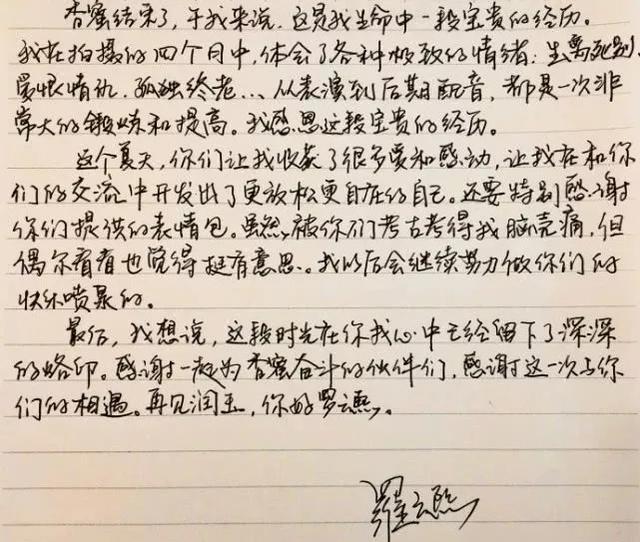 香蜜结束了，于我来说，这是我生命中一段宝贵的经历。
我在拍摄的四个月中，体会了各种极致的情绪：生离死别，
爱恨情仇，孤独终老...从表演到后期配音，都是一次非
常大的锻炼和提高。我感恩这段宝贵的经历。
这个夏天，你们让我收获了很多爱和感动，让我在和你
们的交流中开发出了更放松更自在的自己。还要特别感谢
你们提供的表情包。虽然被你们考古考得我脑壳痛，但
偶尔看看也觉得挺有意思。我以后会继续努力做你们的
快乐喷泉的。
最后，我想说，这段时光在你我心中已经留下了深深
的烙印。感谢一起为香蜜奋斗的伙伴们，感谢这一次与你
们的相遇。再见润玉，你好罗云熙。
罗云熙